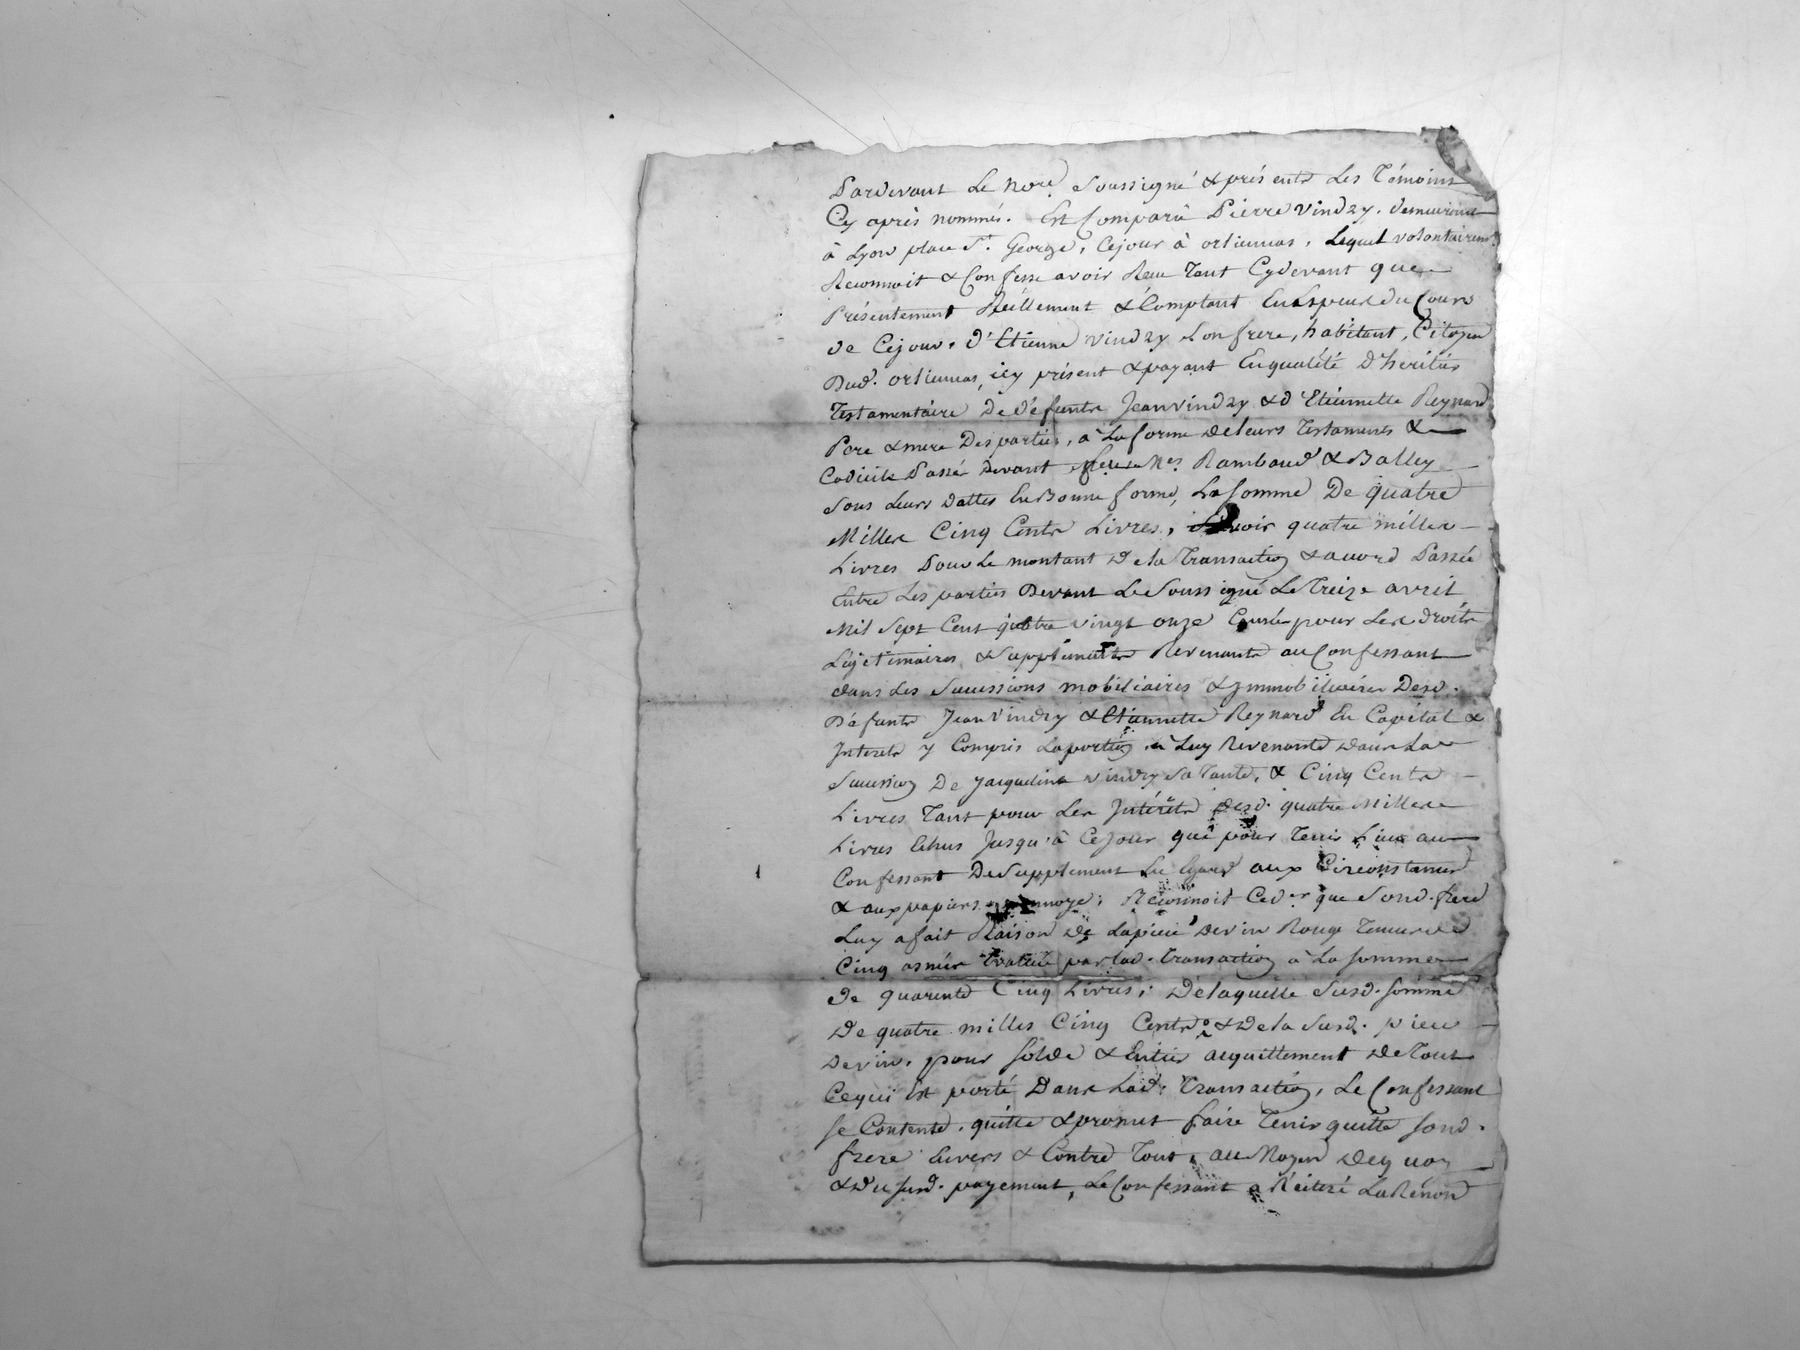 Pardevant Le no.re Soussigné & présents Les Témoins
Cy après nommés. Est Comparû Pierre vindry. demeurant
à Lyon place St. George, Cejour à orlienas, Lequel volontairemt.
Reconnoit & Confesse avoir Reçu Tant Cydevant que
Présentement Réellement & Comptant En Espece du Cours
de Cejour. d'Etienne vindry Son frere, habitant, Citoyen
Dud. orlienas, icy présent & payant Enqualité D'heritier
Testamentaire De défunts Jean vindry & d'Etiennette Reynard
Pere & mere Des parties, à La forme deleurs Testaments &
Codicile Passé Devant Mes. Rambaud & Balley
Sous Leurs Dattes En Bonne forme, La Somme De quatre
Milles Cinq Cents Livres, Savoir quatre milles
Livres Pour Le montant De la Transaction & accord Passée
Entre Les parties Devant Le Soussigné Le Treize avril
Mil Sept Cent quatre vingt onze pour Les droits
Légitimaires & Supplements Revenants au Confessant
dans Les Successions mobiliaires & immobiliaires Desd.
Défunts Jean Vindry & Etiennette Reynard En Capital &
Interets y Compris La portion à Luy Revenante dans La
Succession De Jacqueline vindry Sa Tante, & Cinq Cents
Livres Tant pour Les Intérêts desd. quatre Milles
Livres Echus Jusqu'à Cejour que pour Tenir Lieu au
Confessant De Supplement En Egard aux Circonstances
& aux papiers monoye; Reconnoit Ced.er que Sond. frere
Luy a fait Raison De La piece De vin Rouge Tenue de
Cinq anées par Lad. Transaction à La Somme
De quarente Cinq Livres; De laquelle Susd. Somme
De quatre milles Cinq Cents & De la Susd. piece
De vin, pour Solde & Entier acquittement De Tout
Cequi Est porté Dans Lad. Transaction, Le Confessant
Se Contente, quitte & promet faire Tenir quitte Sond.
frere Envers & Contre Tout, au Moyen Dequoy
& Du Susd. payement, Le Confessant a Réiteré La Renon